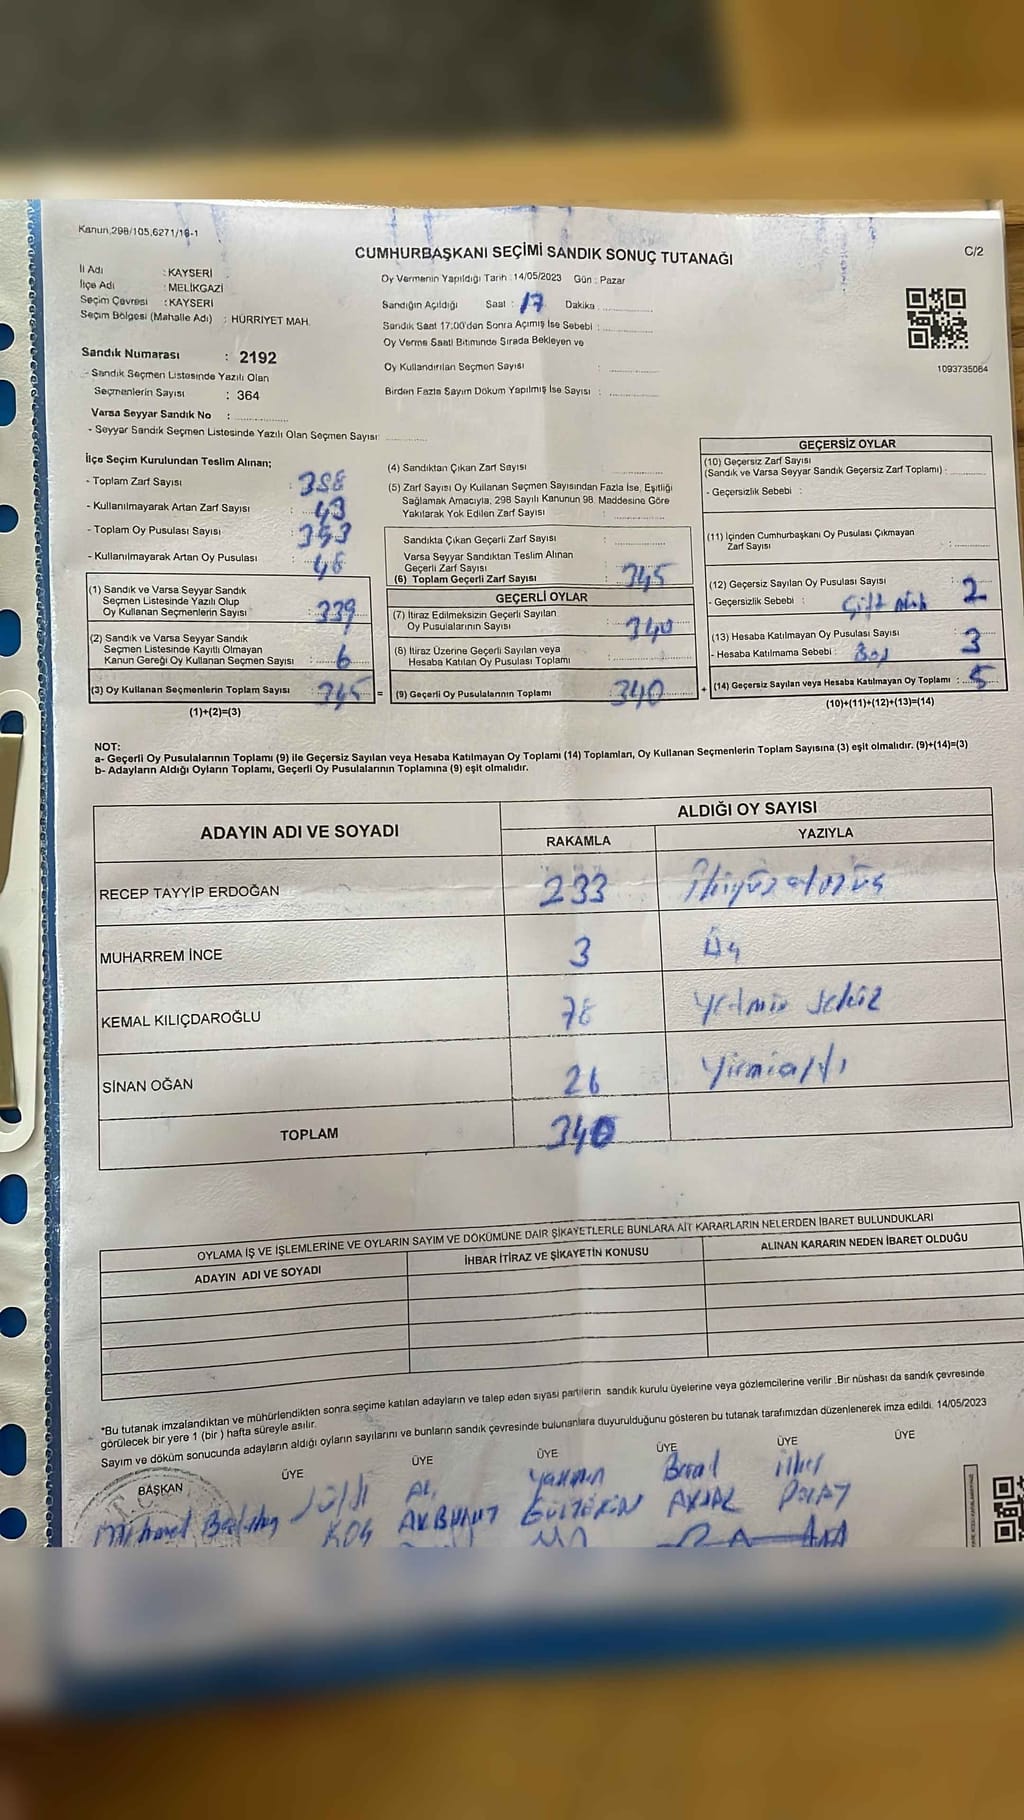 Kanun,298/105,6271/19-1
CUMHURBAŞKANI SEÇİMİ SANDIK SONUÇ TUTANAĞI
C/2
İl Adı : KAYSERİ
İlçe Adı : MELİKGAZİ
Seçim Çevresi : KAYSERİ
Seçim Bölgesi (Mahalle Adı) : HÜRRİYET MAH.
Sandık Numarası : 2192
- Sandık Seçmen Listesinde Yazılı Olan
Seçmenlerin Sayısı : 364
Varsa Seyyar Sandık No :
- Seyyar Sandık Seçmen Listesinde Yazılı Olan Seçmen Sayısı:
Oy Vermenin Yapıldığı Tarih : 14/05/2023 Gün : Pazar
Sandığın Açıldığı Saat : 17 Dakika
Sandık Saat 17:00'dan Sonra Açımış İse Sebebi :
Oy Verme Saati Bitiminde Sırada Bekleyen ve
Oy Kullandırılan Seçmen Sayısı :
Birden Fazla Sayım Döküm Yapılmış İse Sayısı :
1093735064
İlçe Seçim Kurulundan Teslim Alınan;
- Toplam Zarf Sayısı : 388
- Kullanılmayarak Artan Zarf Sayısı : 43
- Toplam Oy Pusulası Sayısı : 393
- Kullanılmayarak Artan Oy Pusulası : 48
(1) Sandık ve Varsa Seyyar Sandık
Seçmen Listesinde Yazılı Olup
Oy Kullanan Seçmenlerin Sayısı : 339
(2) Sandık ve Varsa Seyyar Sandık
Seçmen Listesinde Kayıtlı Olmayan
Kanun Gereği Oy Kullanan Seçmen Sayısı : 6
(3) Oy Kullanan Seçmenlerin Toplam Sayısı : 345 =
(1)+(2)=(3)
(4) Sandıktan Çıkan Zarf Sayısı :
(5) Zarf Sayısı Oy Kullanan Seçmen Sayısından Fazla İse, Eşitliği
Sağlamak Amacıyla, 298 Sayılı Kanunun 98. Maddesine Göre
Yakılarak Yok Edilen Zarf Sayısı :
Sandıkta Çıkan Geçerli Zarf Sayısı :
Varsa Seyyar Sandıktan Teslim Alınan
Geçerli Zarf Sayısı :
(6) Toplam Geçerli Zarf Sayısı : 345
GEÇERLİ OYLAR
(7) İtiraz Edilmeksizin Geçerli Sayılan
Oy Pusulalarının Sayısı : 340
(8) İtiraz Üzerine Geçerli Sayılan veya
Hesaba Katılan Oy Pusulası Toplamı :
(9) Geçerli Oy Pusulalarının Toplamı : 340 +
GEÇERSİZ OYLAR
(10) Geçersiz Zarf Sayısı
(Sandık ve Varsa Seyyar Sandık Geçersiz Zarf Toplamı) :
- Geçersizlik Sebebi :
(11) İçinden Cumhurbaşkanı Oy Pusulası Çıkmayan
Zarf Sayısı :
(12) Geçersiz Sayılan Oy Pusulası Sayısı : 2
- Geçersizlik Sebebi : Çift
(13) Hesaba Katılmayan Oy Pusulası Sayısı : 3
- Hesaba Katılmama Sebebi : Boş
(14) Geçersiz Sayılan veya Hesaba Katılmayan Oy Toplamı : 5
(10)+(11)+(12)+(13)=(14)
NOT:
a- Geçerli Oy Pusulalarının Toplamı (9) ile Geçersiz Sayılan veya Hesaba Katılmayan Oy Toplamı (14) Toplamları, Oy Kullanan Seçmenlerin Toplam Sayısına (3) eşit olmalıdır. (9)+(14)=(3)
b- Adayların Aldığı Oyların Toplamı, Geçerli Oy Pusulalarının Toplamına (9) eşit olmalıdır.
ADAYIN ADI VE SOYADI
ALDIĞI OY SAYISI
RAKAMLA
YAZIYLA
RECEP TAYYİP ERDOĞAN 233 İkiyüzotuzüç
MUHARREM İNCE 3 Üç
KEMAL KILIÇDAROĞLU 78 Yetmiş sekiz
SİNAN OĞAN 26 Yirmialtı
TOPLAM 340
OYLAMA İŞ VE İŞLEMLERİNE VE OYLARIN SAYIM VE DÖKÜMÜNE DAİR ŞİKAYETLERLE BUNLARA AİT KARARLARIN NELERDEN İBARET BULUNDUKLARI
ADAYIN ADI VE SOYADI
İHBAR İTİRAZ VE ŞİKAYETİN KONUSU
ALINAN KARARIN NEDEN İBARET OLDUĞU
*Bu tutanak imzalandıktan ve mühürlendikten sonra seçime katılan adayların ve talep eden siyasi partilerin sandık kurulu üyelerine veya gözlemcilerine verilir .Bir nüshası da sandık çevresinde
görülecek bir yere 1 (bir ) hafta süreyle asılır.
Sayım ve döküm sonucunda adayların aldığı oyların sayılarını ve bunların sandık çevresinde bulunanlara duyurulduğunu gösteren bu tutanak tarafımızdan düzenlenerek imza edildi. 14/05/2023
BAŞKAN ÜYE ÜYE ÜYE ÜYE ÜYE ÜYE
Mehmet
KOÇ
AKBULUT
Yasemin
GÜLTEKİN
İlker
POLAT